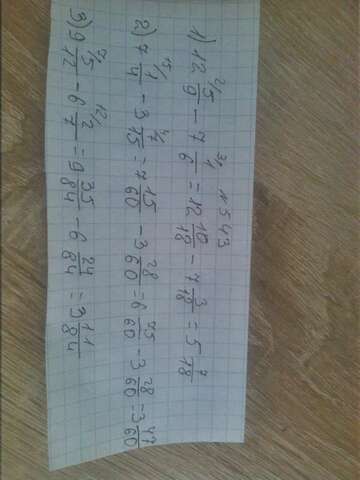 №543
1) 12 5/9 - 7 1/6 = 12 10/18 - 7 3/18 = 5 7/18
2) 7 1/4 - 3 7/15 = 7 15/60 - 3 28/60 = 6 75/60 - 3 28/60 = 3 47/60
3) 9 5/12 - 6 2/7 = 9 35/84 - 6 24/84 = 3 11/84